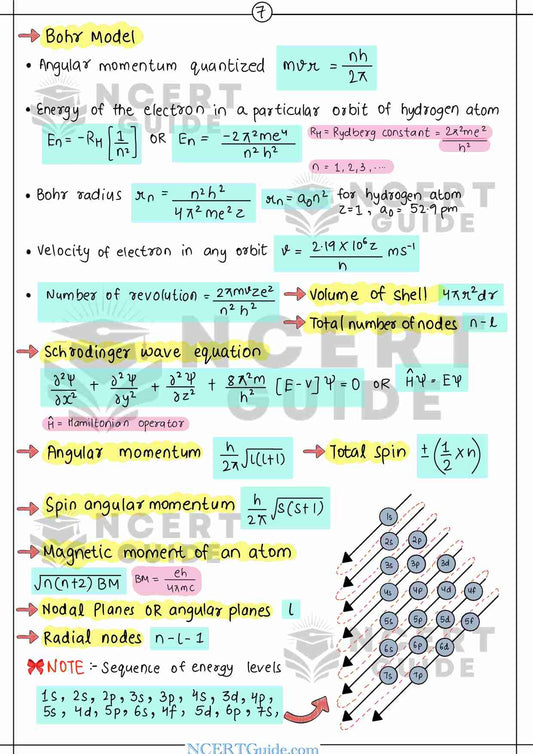 7
→ Bohr Model
• Angular momentum quantized mvr = nh/2π
• Energy of the electron in a particular orbit of hydrogen atom
En = -RH [1/n²] OR En = -2π²me⁴/n²h² RH = Rydberg constant = 2π²me²/h²
n = 1, 2, 3, ...
• Bohr radius rn = n²h²/4π²me²z rn = a₀n² for hydrogen atom
z=1, a₀ = 52.9 pm
• Velocity of electron in any orbit v = 2.19 X 10⁶z/n ms⁻¹
• Number of revolution = 2πmvze²/n²h² → Volume of shell 4πr²dr
→ Total number of nodes n-l
→ Schrodinger wave equation
∂²Ψ/∂x² + ∂²Ψ/∂y² + ∂²Ψ/∂z² + 8π²m/h² [E-V]Ψ = 0 OR ĤΨ = EΨ
Ĥ = Hamiltonian operator
→ Angular momentum h/2π √l(l+1) → Total spin ± (1/2 x n)
→ Spin angular momentum h/2π √s(s+1)
→ Magnetic moment of an atom
√n(n+2) BM BM = eh/4πmc
→ Nodal Planes OR angular planes l
→ Radial nodes n-l-1
NOTE :- Sequence of energy levels
1s, 2s, 2p, 3s, 3p, 4s, 3d, 4p,
5s, 4d, 5p, 6s, 4f, 5d, 6p, 7s,
1s
2s 2p
3s 3p 3d
4s 4p 4d 4f
5s 5p 5d 5f
6s 6p 6d
7s 7p
NCERT GUIDE
NCERT GUIDE
NCERT GUIDE
NCERT GUIDE
NCERT GUIDE
NCERTGuide.com